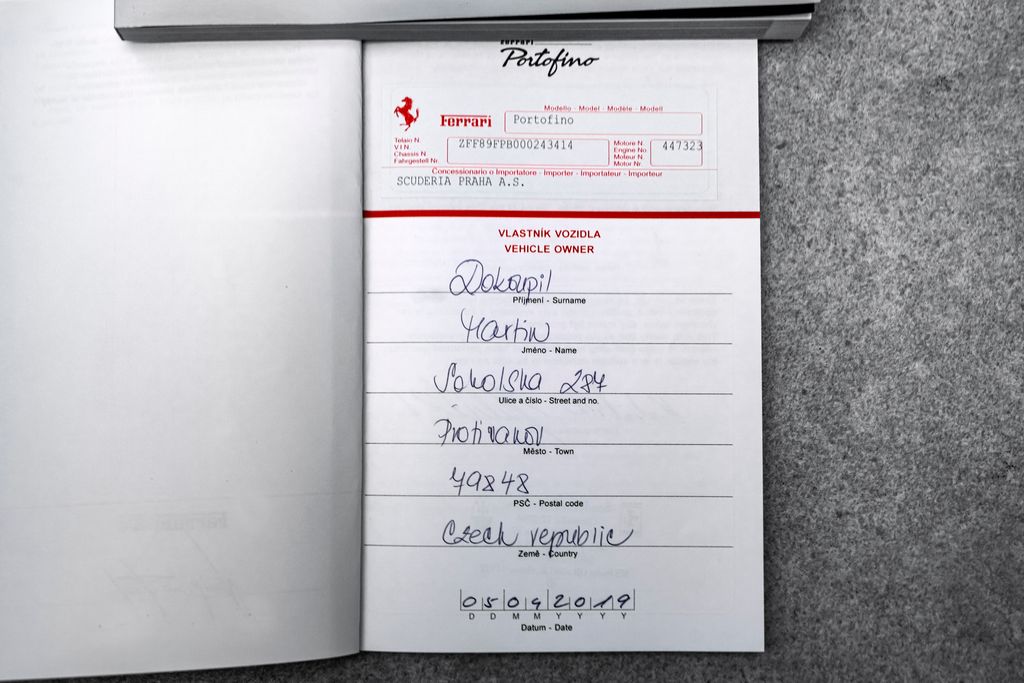 Ferrari
Portofino
Ferrari
Modello - Model - Modèle - Modell
Portofino
Telaio N.
V I N.
Chassis N.
Fahrgestell Nr.
ZFF89FPB000243414
Motore N.
Engine No.
Moteur N.
Motor Nr.
447323
Concessionario o Importatore - Importer - Importateur - Importeur
SCUDERIA PRAHA A.S.
VLASTNÍK VOZIDLA
VEHICLE OWNER
Dokoupil
Příjmení - Surname
Martin
Jméno - Name
Sokolska 287
Ulice a číslo - Street and no.
Protivanov
Město - Town
79848
PSČ - Postal code
Czech republic
Země - Country
05042019
D D M M Y Y Y Y
Datum - Date